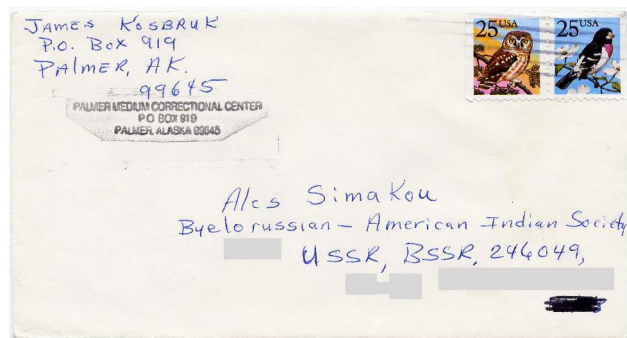 James Kosbruk
P.O. Box 919
Palmer, AK.
99645
PALMER MEDIUM CORRECTIONAL CENTER
P O BOX 919
PALMER, ALASKA 99645
25 USA
25 USA
Ales Simakou
Byelorussian – American Indian Society
USSR, BSSR, 246049,